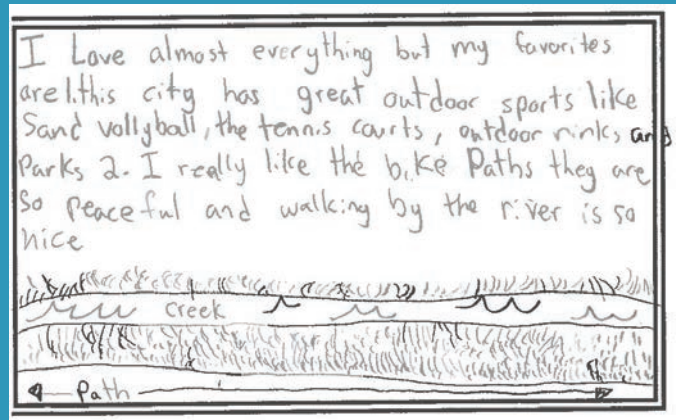 I Love almost everything but my favorites
are 1.this city has great outdoor sports like
Sand vollyball, the tennis courts, outdoor rinks and
Parks 2. I really like the bike Paths they are
So peaceful and walking by the river is so
nice
creek
Path